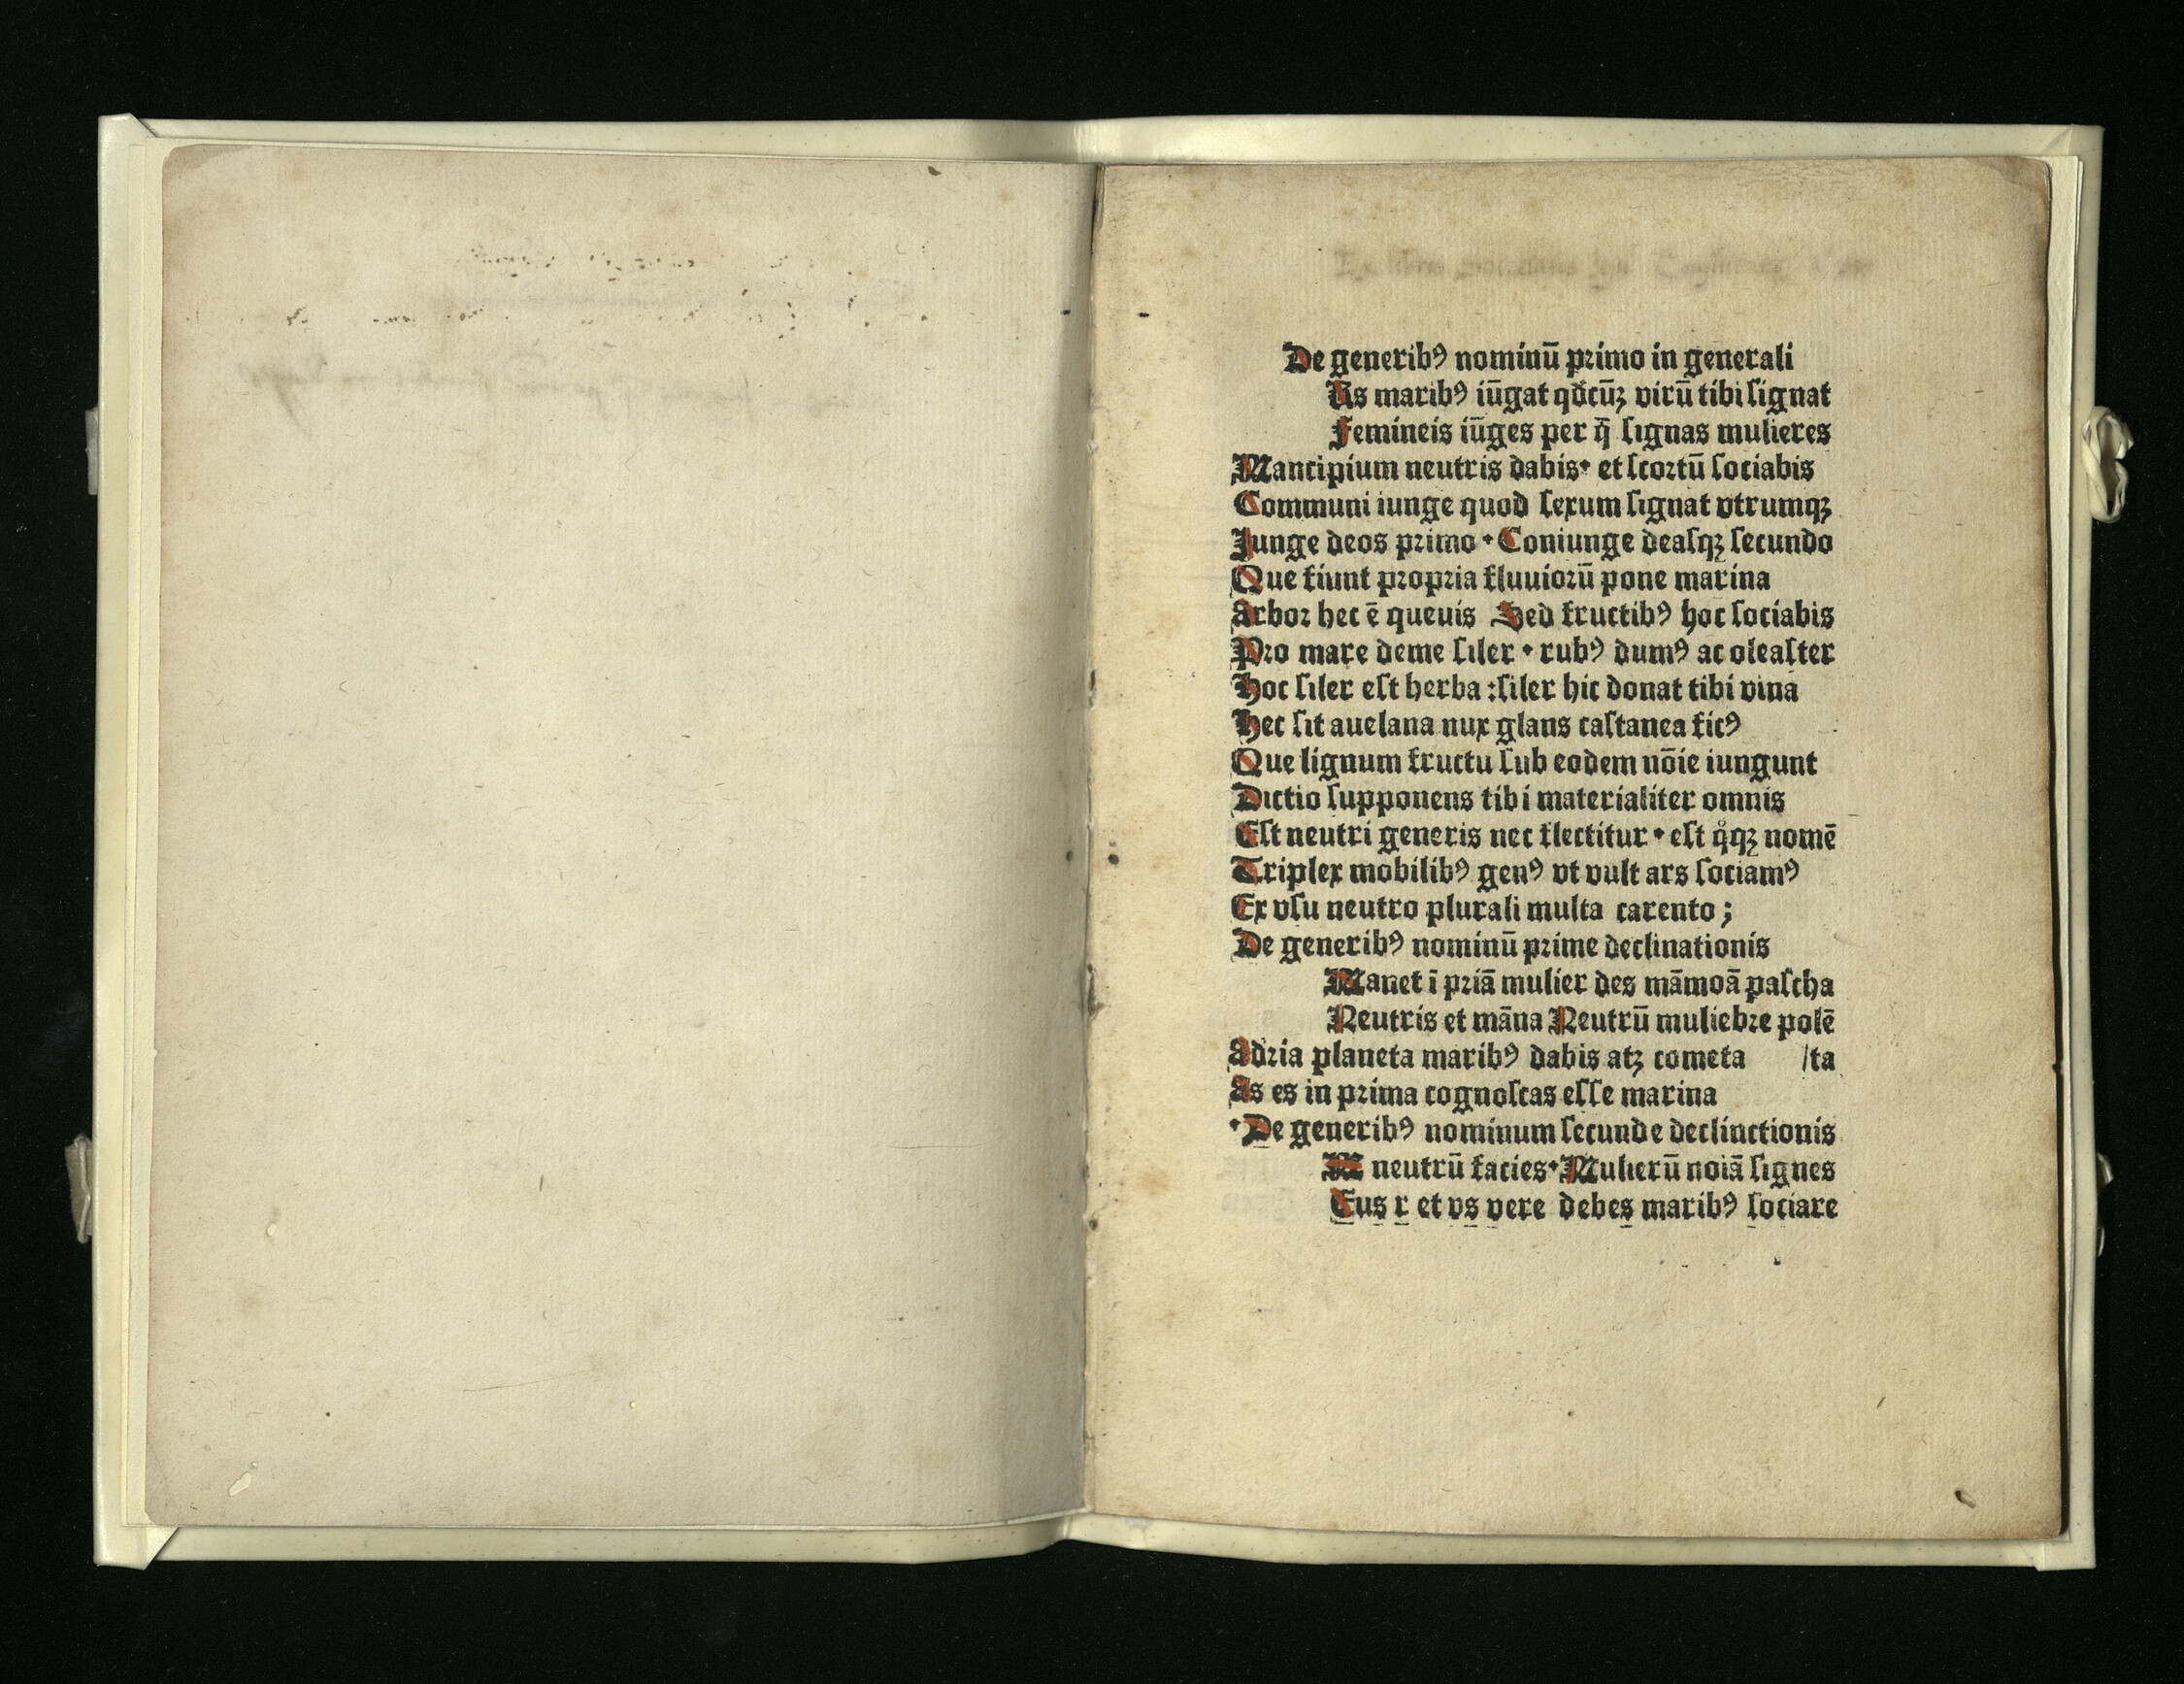 De generibꝰ nominū primo in generali
As maribꝰ iūgat qđcūꝫ virū tibi ſignat
Femineis iūges per q̄ ſignas mulieres
Mancipium neutris dabis· et ſcortū ſociabis
Communi iunge quod ſexum ſignat vtrumqꝫ
Junge deos primo · Coniunge deaſqꝫ ſecundo
Que fiunt propria fluuiorū pone marina
Arbor hec ē queuis Sed fructibꝰ hoc ſociabis
Pro mare deme ſiler · rubꝰ dumꝰ ac oleaſter
Hoc ſiler eſt herba :ſiler hic donat tibi vina
Hec ſit auelana nux glans caſtanea ficꝰ
Que lignum fructu ſub eodem nōie iungunt
Dictio ſupponens tibi materialiter omnis
Eſt neutri generis nec flectitur · eſt qͦqꝫ nomē
Triplex mobilibꝰ genꝰ vt vult ars ſociamꝰ
Ex vſu neutro plurali multa carento ;
De generibꝰ nominū prime declinationis
Manet ī priā mulier des māmoā paſcha
Neutris et māna Neutrū muliebre polē
Adria planeta maribꝰ dabis atꝫ cometa /ta
As es in prima cognoſcas eſſe marina
·De generibꝰ nominum ſecunde declinctionis
M neutrū facies· Mulierū noiā ſignes
Eus r et vs vere debes maribꝰ ſociare